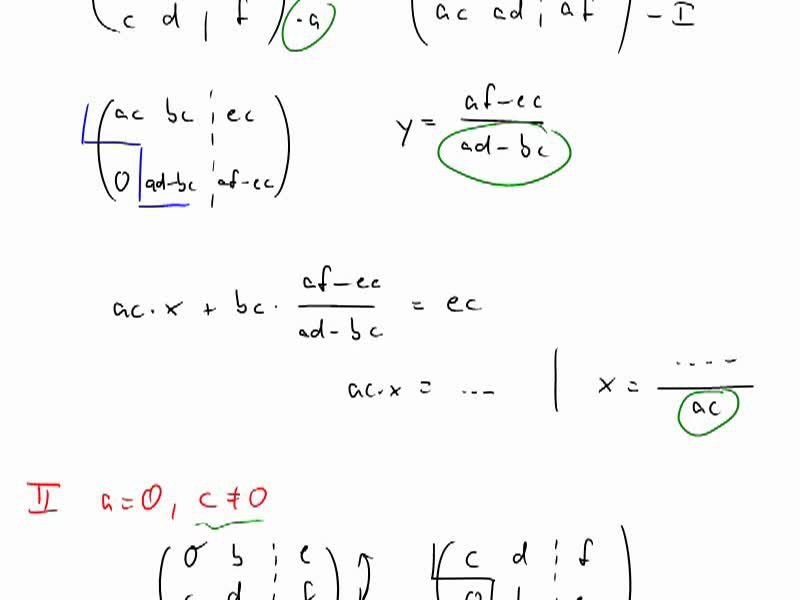 ( c d | f ) ·a ( ac ad ¦ af ) - I
( ac bc ¦ ec
0 ad-bc ¦ af-ec )
y = af-ec / ad-bc
ac·x + bc· af-ec / ad-bc = ec
ac·x = ... | x = .... / ac
II a=0, c≠0
( 0 b ¦ e ( c d ¦ f )